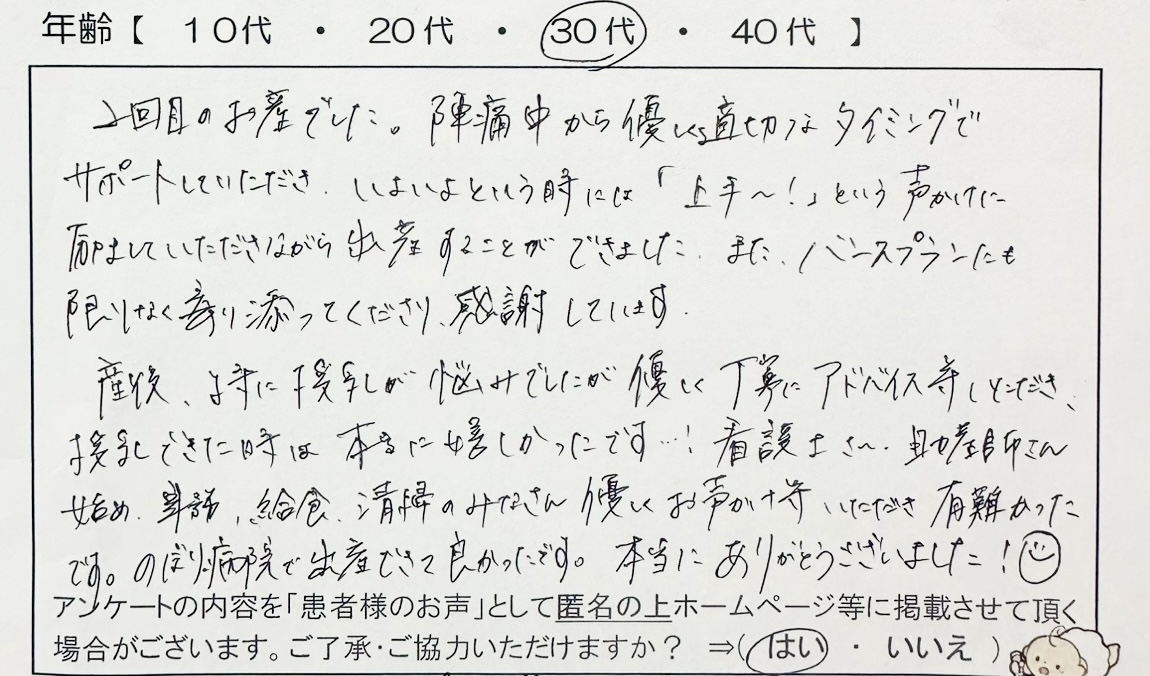 年齢【 10代 ・ 20代 ・ 30代 ・ 40代 】
2回目のお産でした。陣痛中から優しく適切なタイミングで
サポートしていただき、いよいよという時には「上手〜！」という声かけに
励ましていただきながら出産することができました。また、バースプランにも
限りなく寄り添ってくださり、感謝しています。
産後、上手に授乳しが悩みでしたが優しく丁寧にアドバイス等いただき、
授乳できた時は本当に嬉しかったです…！看護士さん、助産師さん
始め、給食、清掃のみなさん優しくお声がけ等いただき有難かった
です。のぼり病院で出産できて良かったです。本当にありがとうございました！
アンケートの内容を「患者様のお声」として匿名の上ホームページ等に掲載させて頂く
場合がございます。ご了承・ご協力いただけますか？ ⇒( はい ・ いいえ )